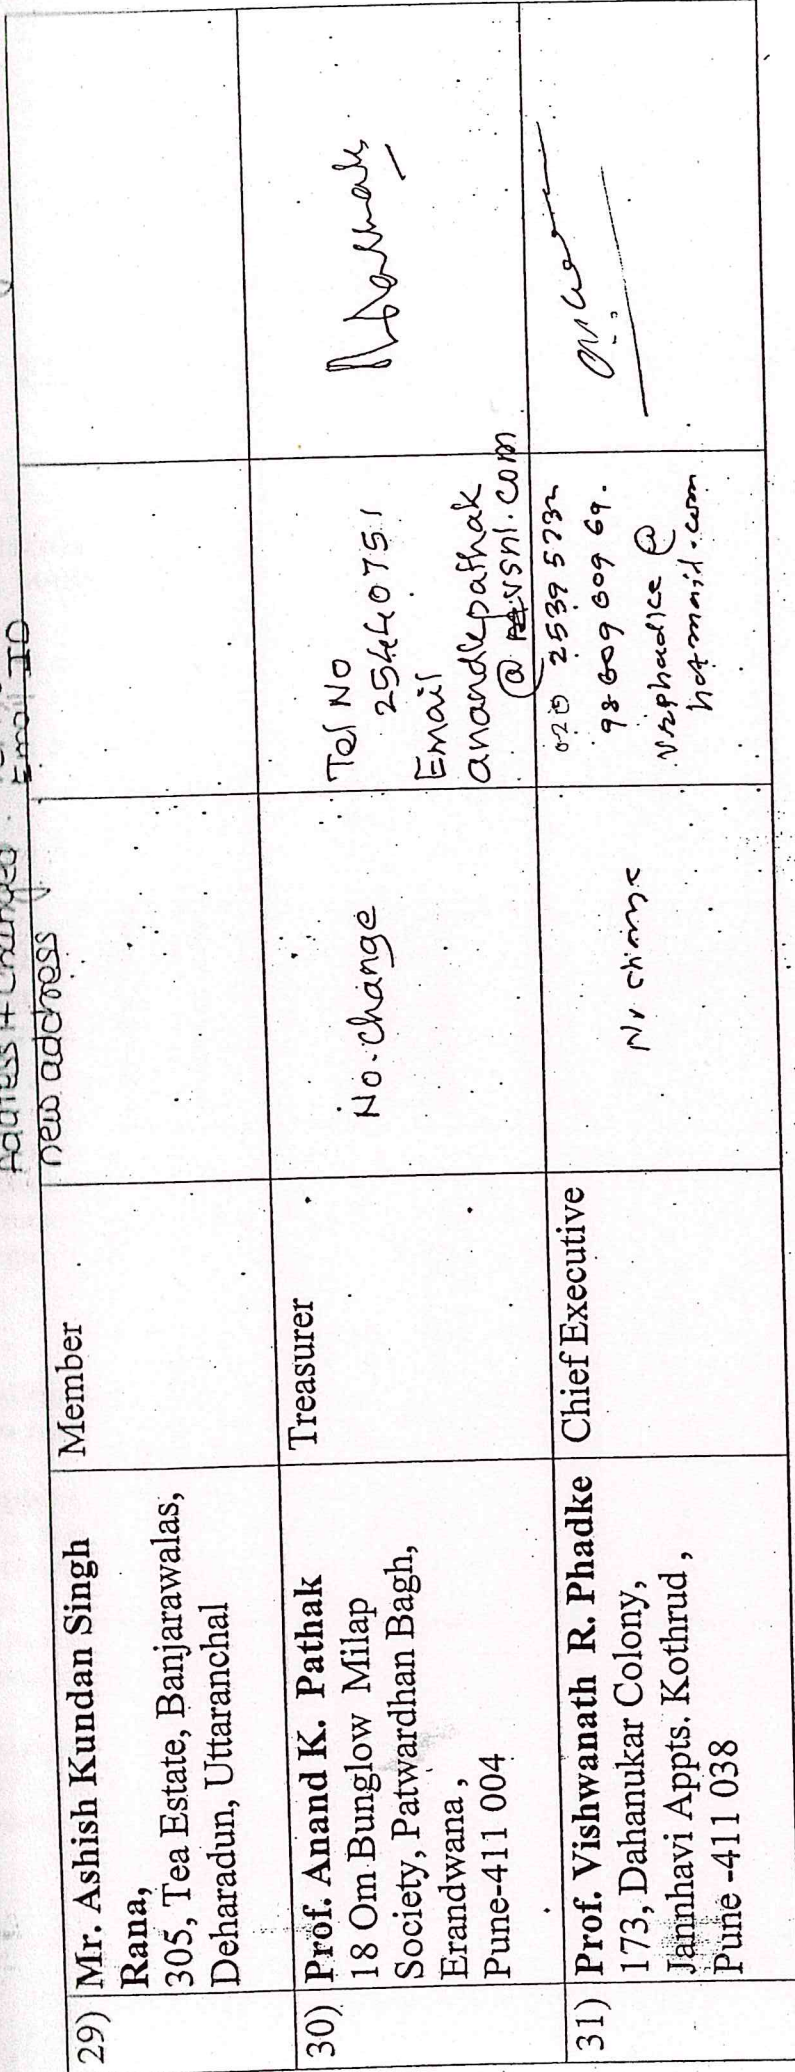 Address if Changed
new address
Email ID
29) Mr. Ashish Kundan Singh
Rana,
305, Tea Estate, Banjarawalas,
Deharadun, Uttaranchal
Member
30) Prof. Anand K. Pathak
18 Om Bunglow Milap
Society, Patwardhan Bagh,
Erandwana,
Pune-411 004
Treasurer
No. change
Tel No
25440751
Email
anandkpathak
@ vsnl.com
31) Prof. Vishwanath R. Phadke
173, Dahanukar Colony,
Jannhavi Appts. Kothrud,
Pune -411 038
Chief Executive
No change
020 2539 5732
98 609 609 69.
vrphadke @
hotmail.com